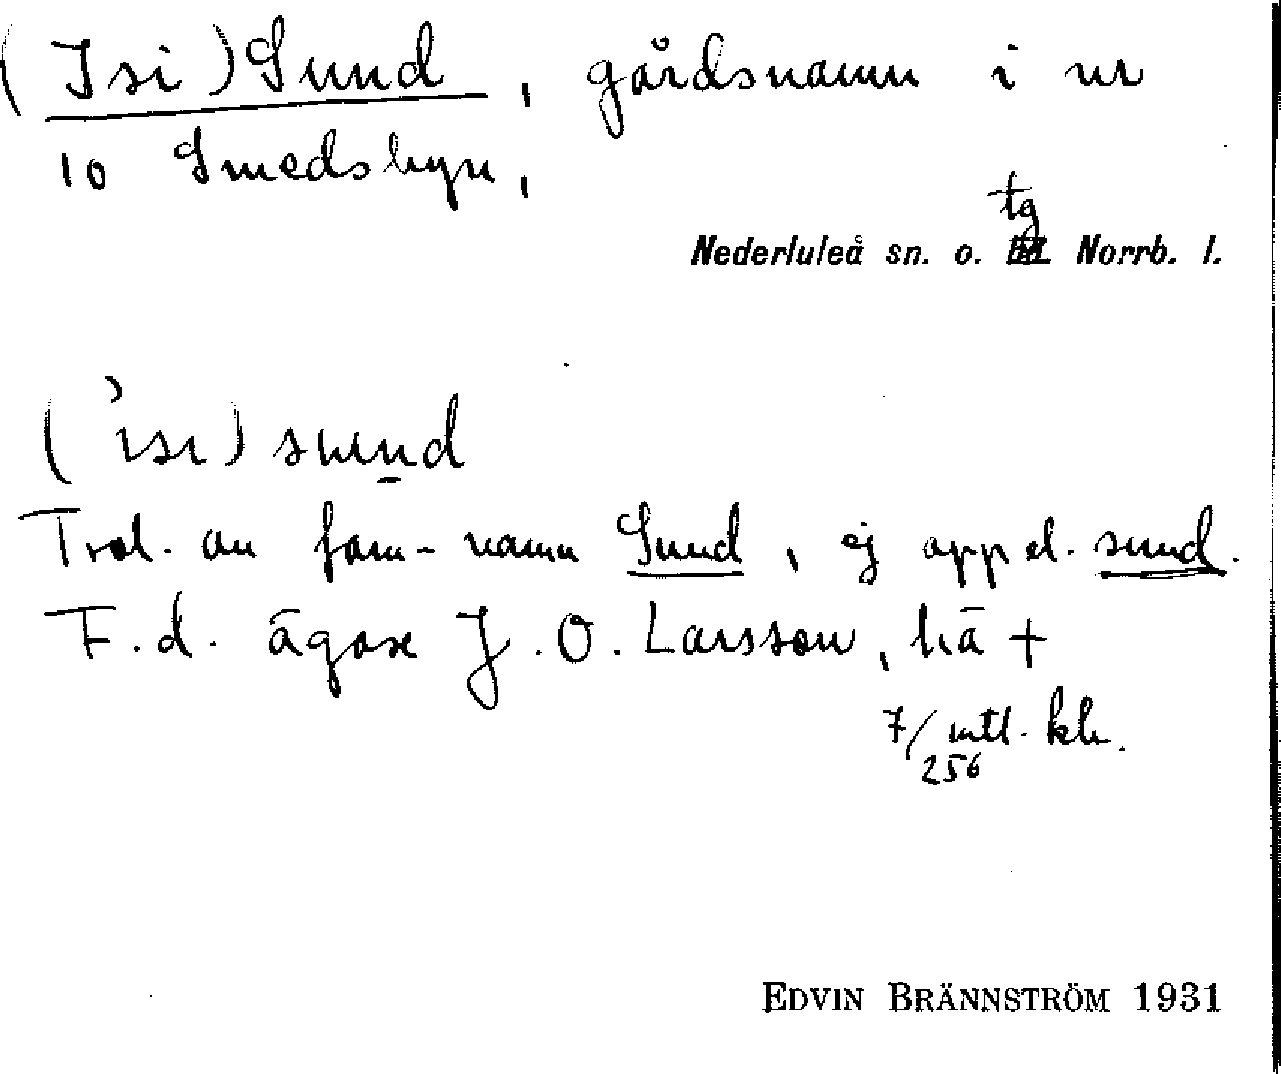 (Isi)Sund, gårdsnamn i nr
10 Smedsbyn,
tg
Nederluleå sn. o. Norrb. l.
(ˈisi) sund
Trol. av fam-namn Sund, ej appel. sund.
F.d. ägare J.O. Larsson, hä +
7/256 mtl. kh.
EDVIN BRÄNNSTRÖM 1931